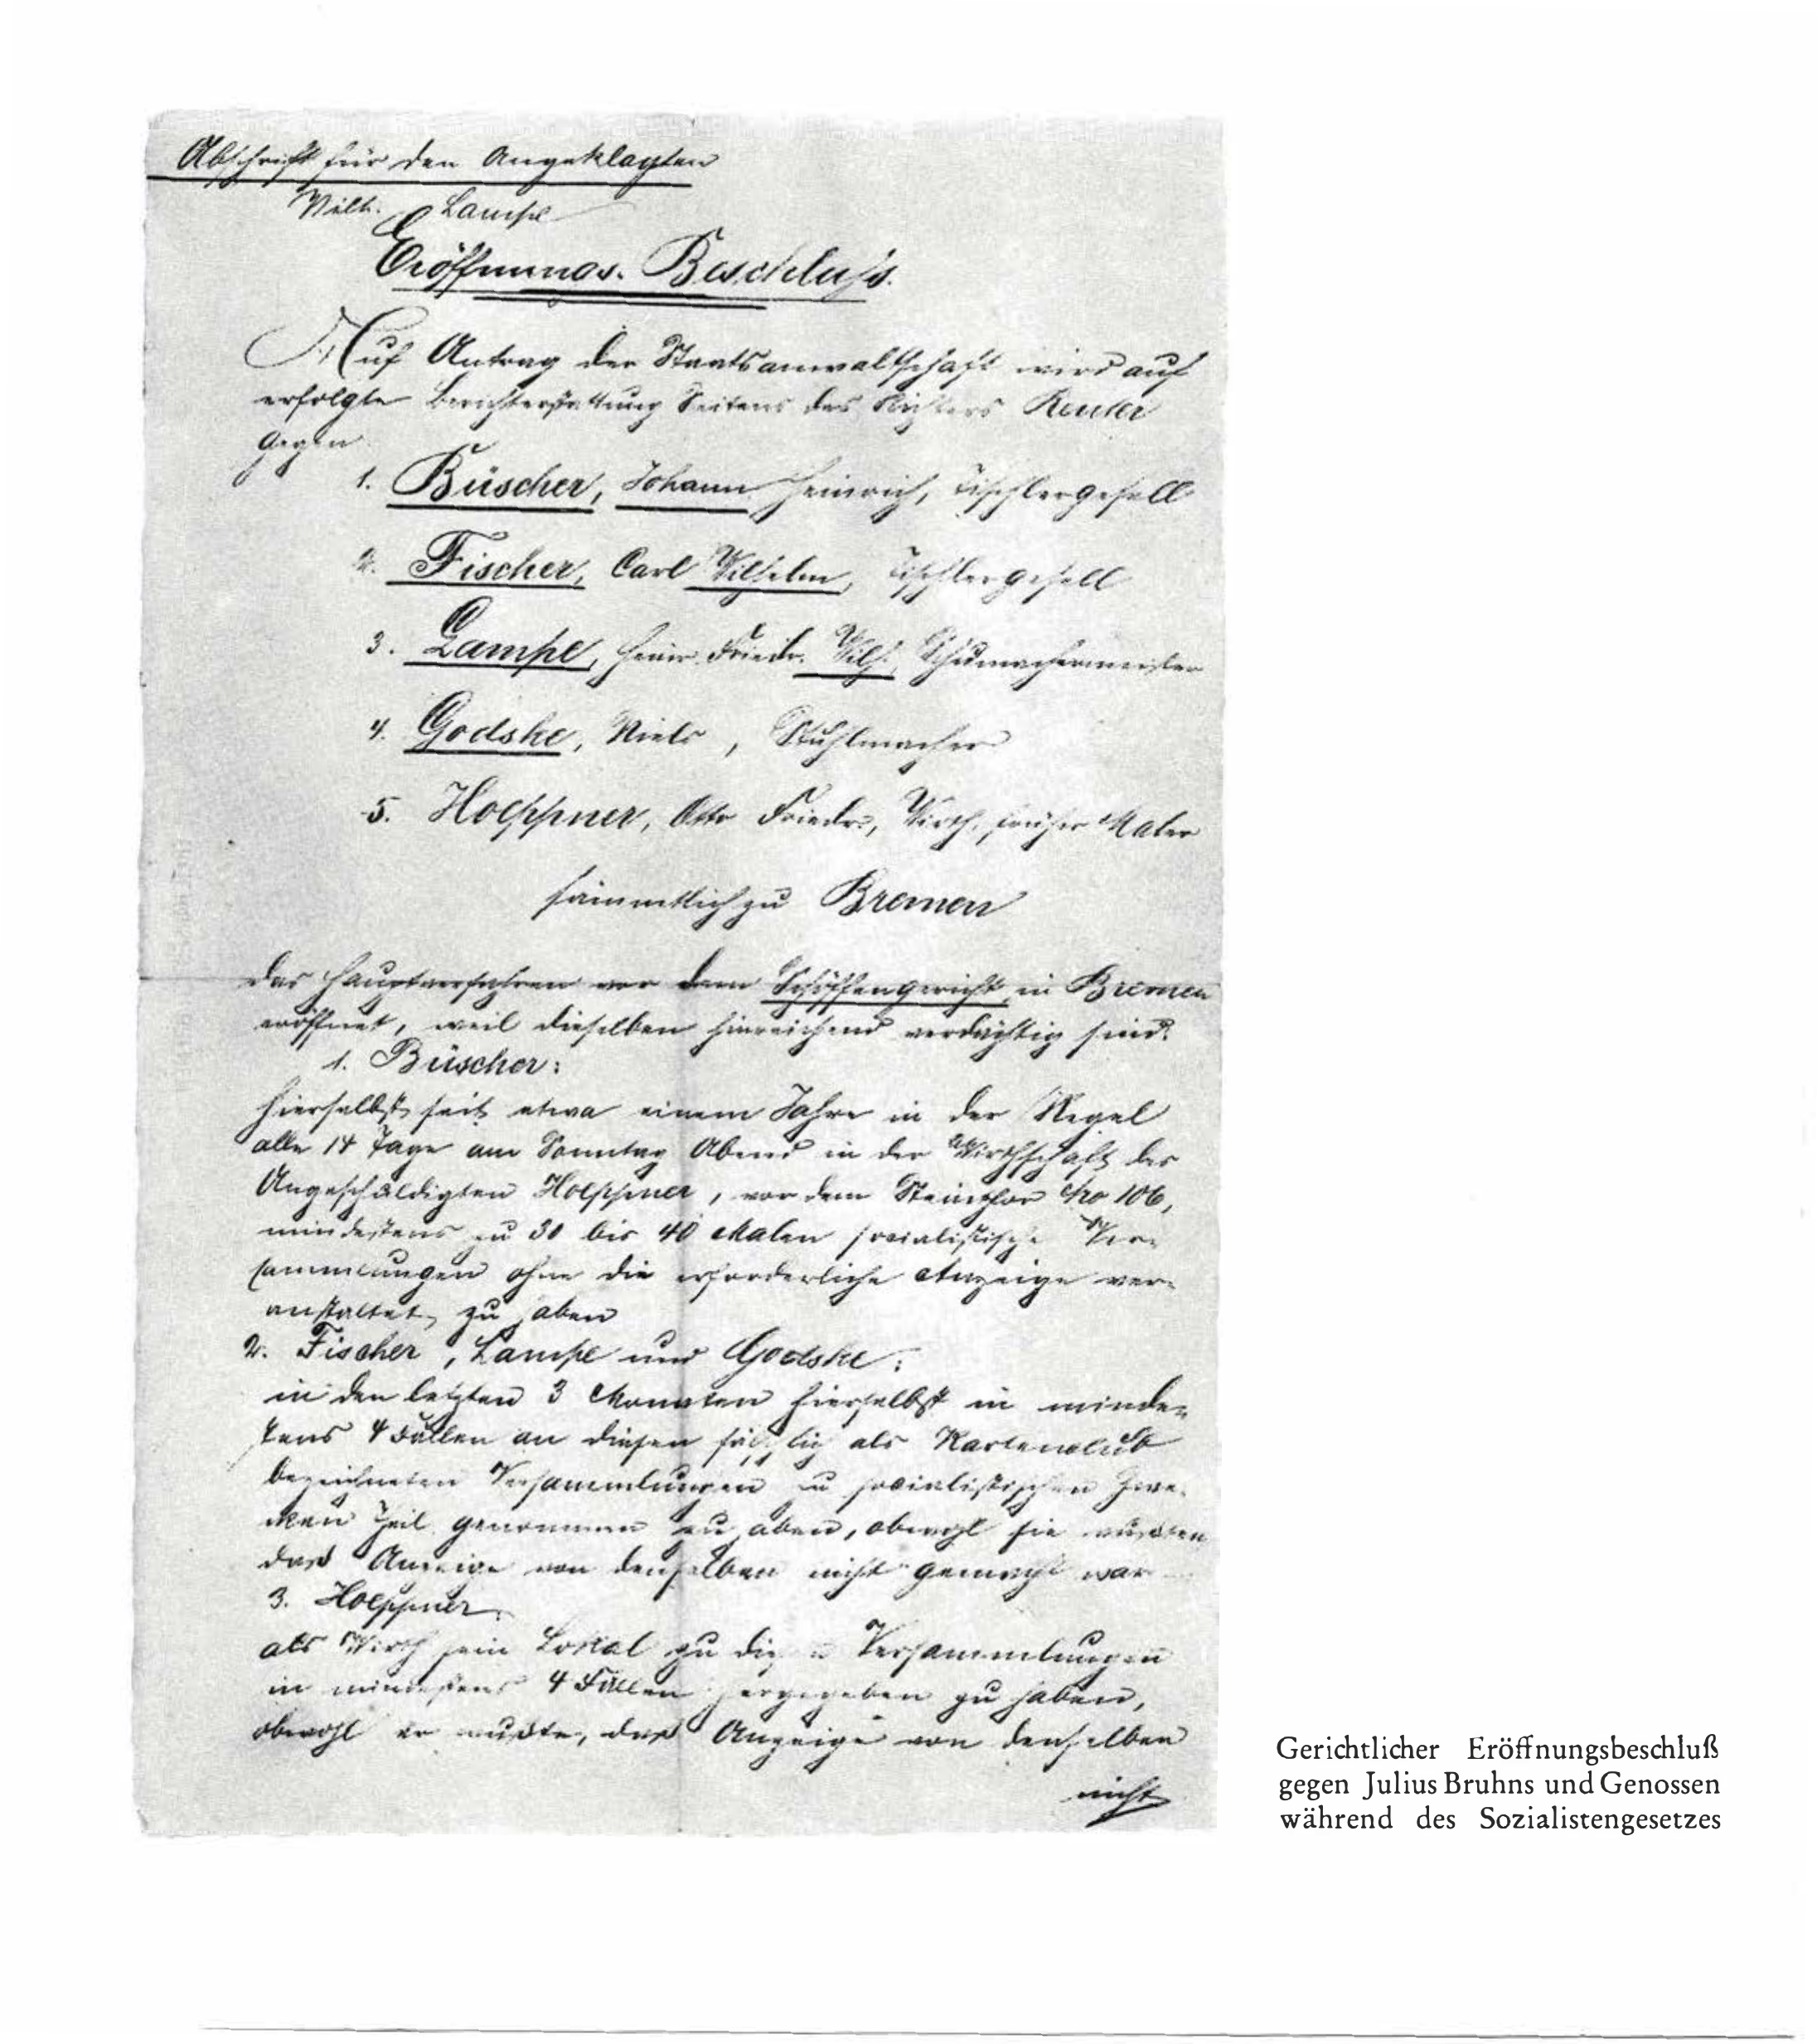 Abschrift für den Angeklagten
Wilh. Lampe
Eröffnungs-Beschluss.
Auf Antrag der Staatsanwaltschaft wird auf
erfolgte Berichterstattung Seitens des Richters Reuter
gegen
1. Büscher, Johann Heinrich, Tischlergesell
2. Fischer, Carl Wilhelm, Tischlergesell
3. Lampe, Heinr. Friedr. Wilh. Schumachermeister
4. Godske, Niels, Stuhlmacher
5. Hoeppner, Otto Friedr., Wirth, früher Maler
sämmtlich zu Bremen
das Hauptverfahren vor dem Schöffengericht in Bremen
eröffnet, weil dieselben hinreichend verdächtig sind:
1. Büscher:
hierselbst seit etwa einem Jahre in der Regel
alle 14 Tage am Sonntag Abend in der Wirthschaft des
Angeschuldigten Hoeppner, vor dem Steinthor No 106,
mindestens zu 30 bis 40 Malen socialistische Ver-
sammlungen ohne die erforderliche Anzeige ver-
anstaltet zu haben
2. Fischer, Lampe und Godske:
in den letzten 3 Monaten hierselbst in minde-
stens 4 Fällen an diesen fälschlich als Kartenclub
bezeichneten Versammlungen zu socialistischen Zwe-
cken Theil genommen zu haben, obwohl sie wußten
daß Anzeige von denselben nicht gemacht war
3. Hoeppner:
als Wirth sein Lokal zu diesen Versammlungen
in mindestens 4 Fällen hergegeben zu haben,
obwohl er wußte, daß Anzeige von denselben
nicht
Gerichtlicher Eröffnungsbeschluß
gegen Julius Bruhns und Genossen
während des Sozialistengesetzes